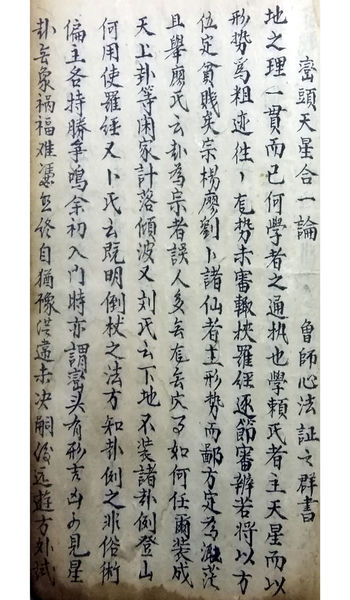 巒頭天星合一論　魯師心法証之群書
地之理一貫而已何學者之通执也學頼氏者主天星而以
形势爲粗迹徃〻龙势未審輙挾羅经逐節審辨若將以方
位定貧賤矣宗楊廖劉卜諸仙者主形势而鄙方定為渺茫
且舉廖氏云卦為宗者誤人多无龙无穴如何任爾装成
天上卦等闲家計落傾波又刘氏云下地不装諸卦例登山
何用使羅经又卜氏云既明倒杖之法方知卦例之非俗術
偏主各持勝爭鳴余初入門時亦謂巒头有形吉凶見星
卦无象祸福难憑终自猶豫遠未决嗣後远遊方外試